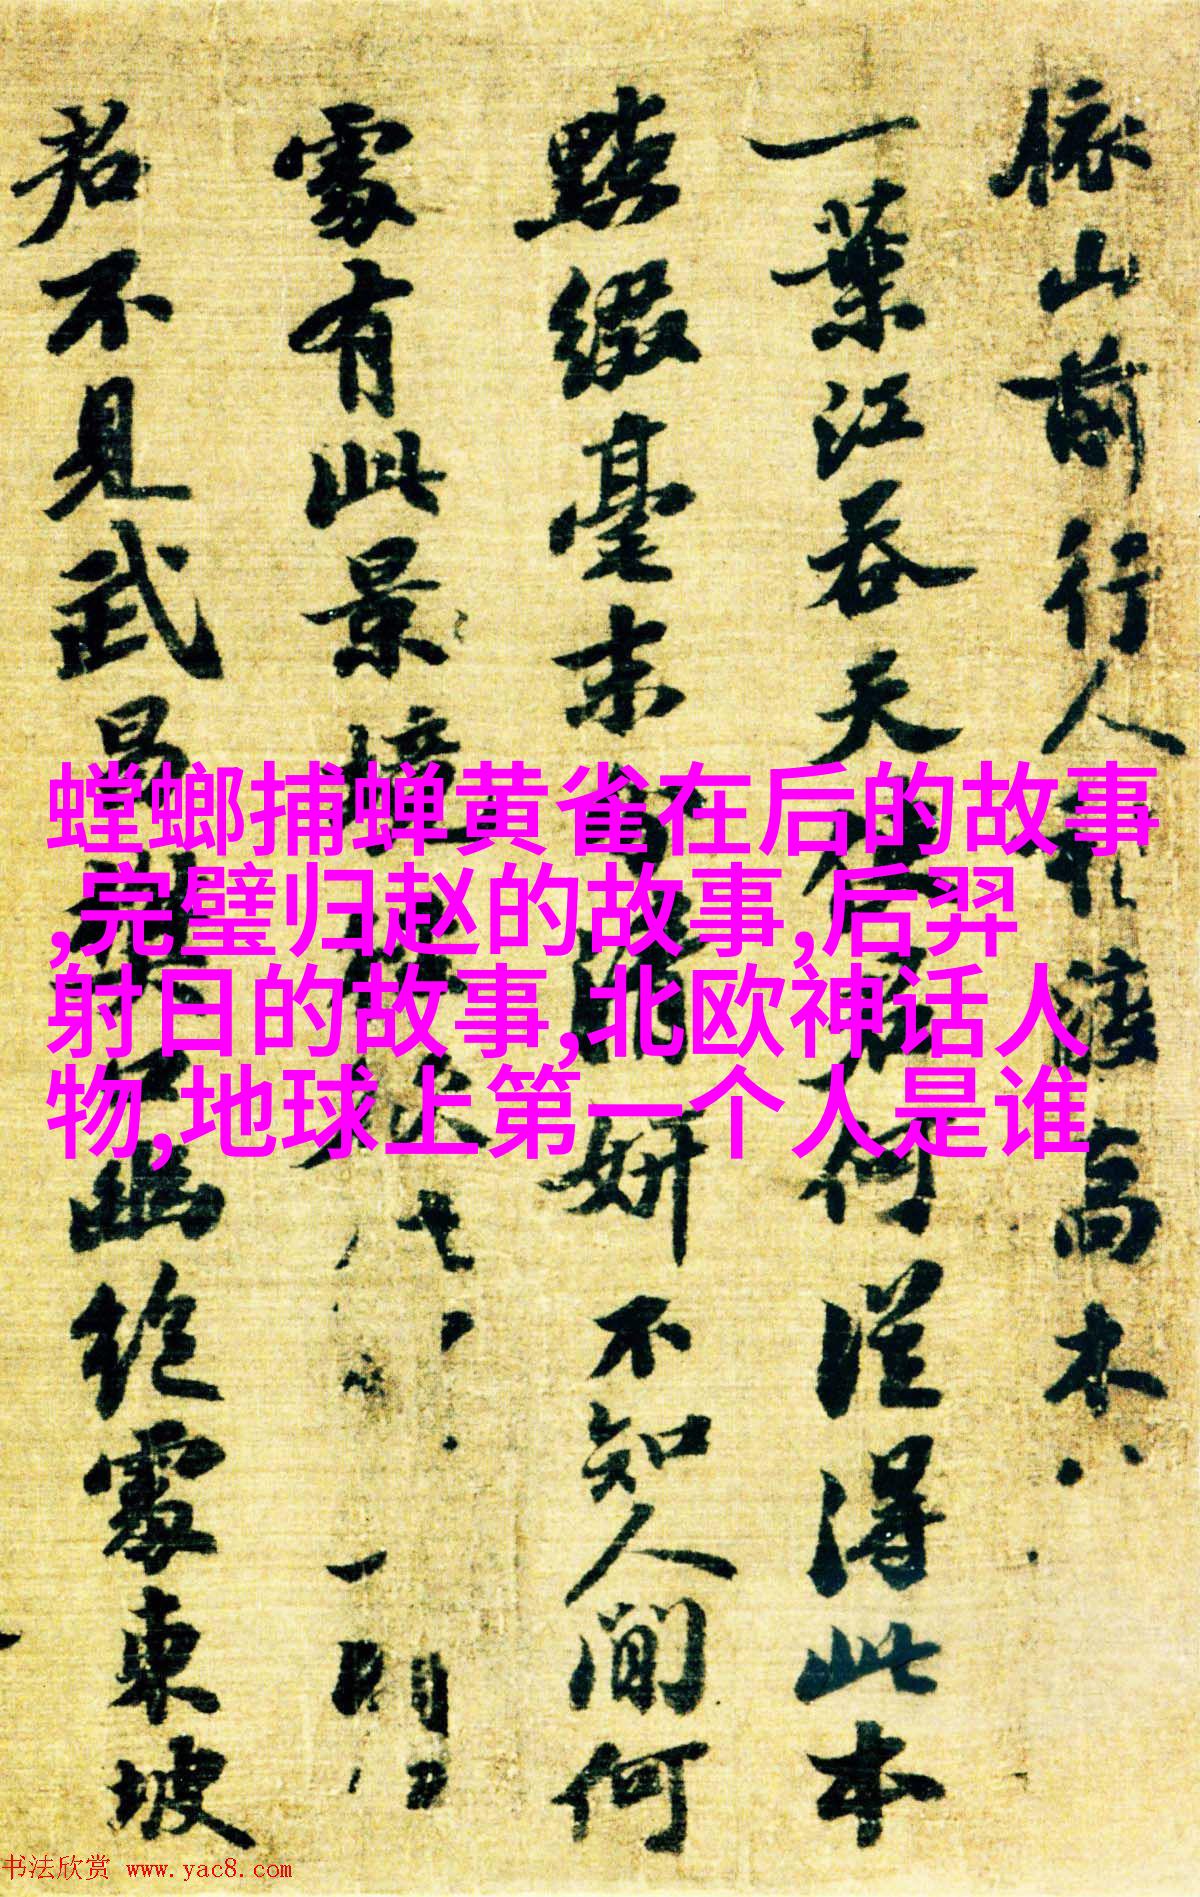 依山前行人渡高木
一葉江吞天何從得此本
點綴毫末妍不知人間何
處有此景境
君不見武昌樊口幽絕處東坡
螳螂捕蝉黄雀在后的故事
,完璧归赵的故事,后羿
射日的故事,北欧神话人
物,地球上第一个人是谁
书法欣赏 www.yac8.com